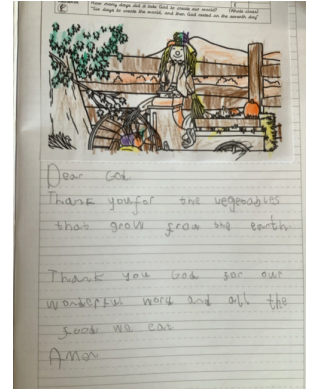 How many days did it take God to create our world?
"Six days to create the world, and then God rested on the seventh day"
(Whole class)
Dear God
Thank you for the vegetables
that grow from the earth
Thank you God for our
wonderful world and all the
food we eat
Amen